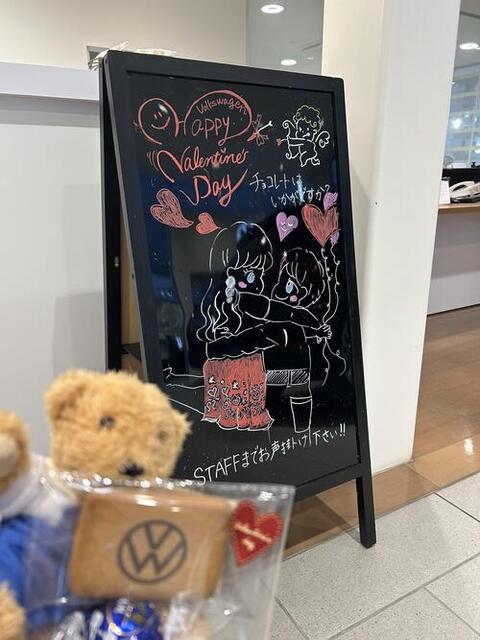 Volkswagen
Happy
Valentine's
Day
チョコレートは
いかがですか?
STAFFまでお声掛け下さい!!
VW